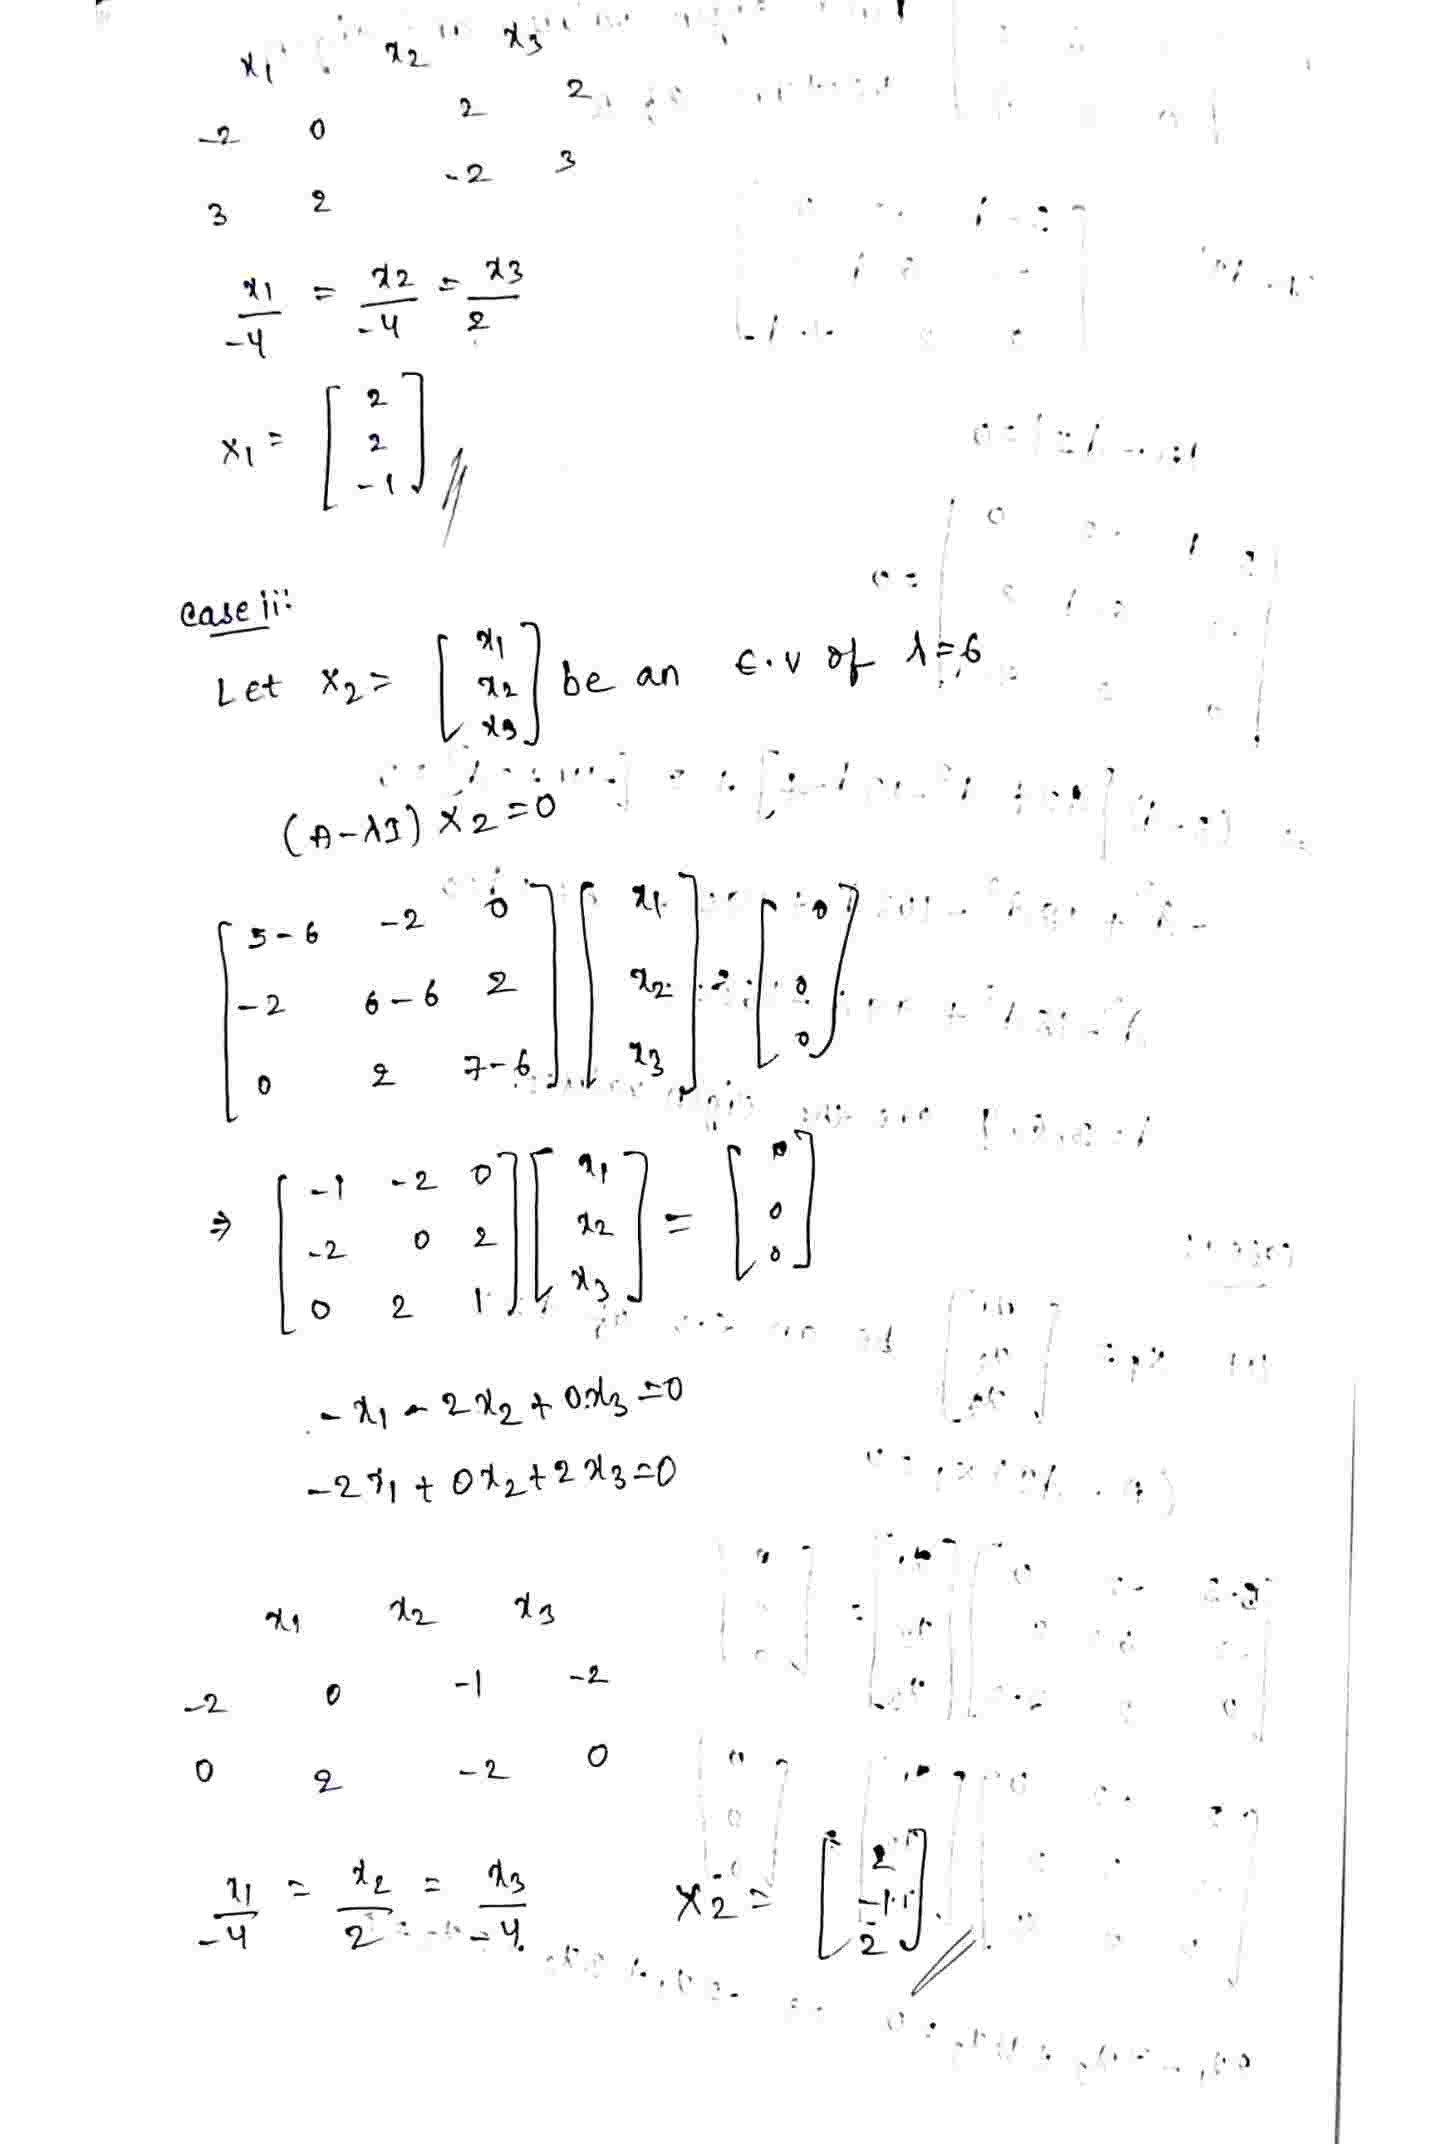 x1 x2 x3
-2 0 2 2
3 2 -2 3
x1/-4 = x2/-4 = x3/2
X1 = [ 2
2
-1 ]
Case ii:
Let X2 = [ x1
x2
x3 ] be an E.V of λ=6
(A-λI) X2 = 0
[ 5-6 -2 0 ] [ x1 ] = [ 0 ]
[ -2 6-6 2 ] [ x2 ] [ 0 ]
[ 0 2 7-6 ] [ x3 ] [ 0 ]
⇒ [ -1 -2 0 ] [ x1 ] = [ 0 ]
[ -2 0 2 ] [ x2 ] [ 0 ]
[ 0 2 1 ] [ x3 ] [ 0 ]
-x1 - 2x2 + 0.x3 = 0
-2x1 + 0x2 + 2x3 = 0
x1 x2 x3
-2 0 -1 -2
0 2 -2 0
x1/-4 = x2/2 = x3/-4 X2 = [ 2
-1
2 ]